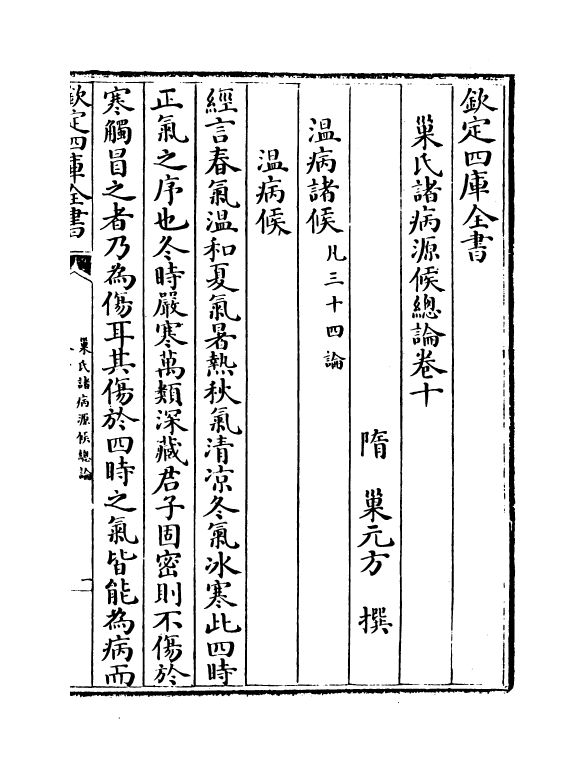 欽定四庫全書
巢氏諸病源候總論卷十
隋 巢元方 撰
温病諸候凡三十四論
温病候
經言春氣温和夏氣暑熱秋氣清凉冬氣冰寒此四時
正氣之序也冬時嚴寒萬類深藏君子固密則不傷於
寒觸冒之者乃為傷耳其傷於四時之氣皆能為病而
欽定四庫全書
巢氏諸病源候總論